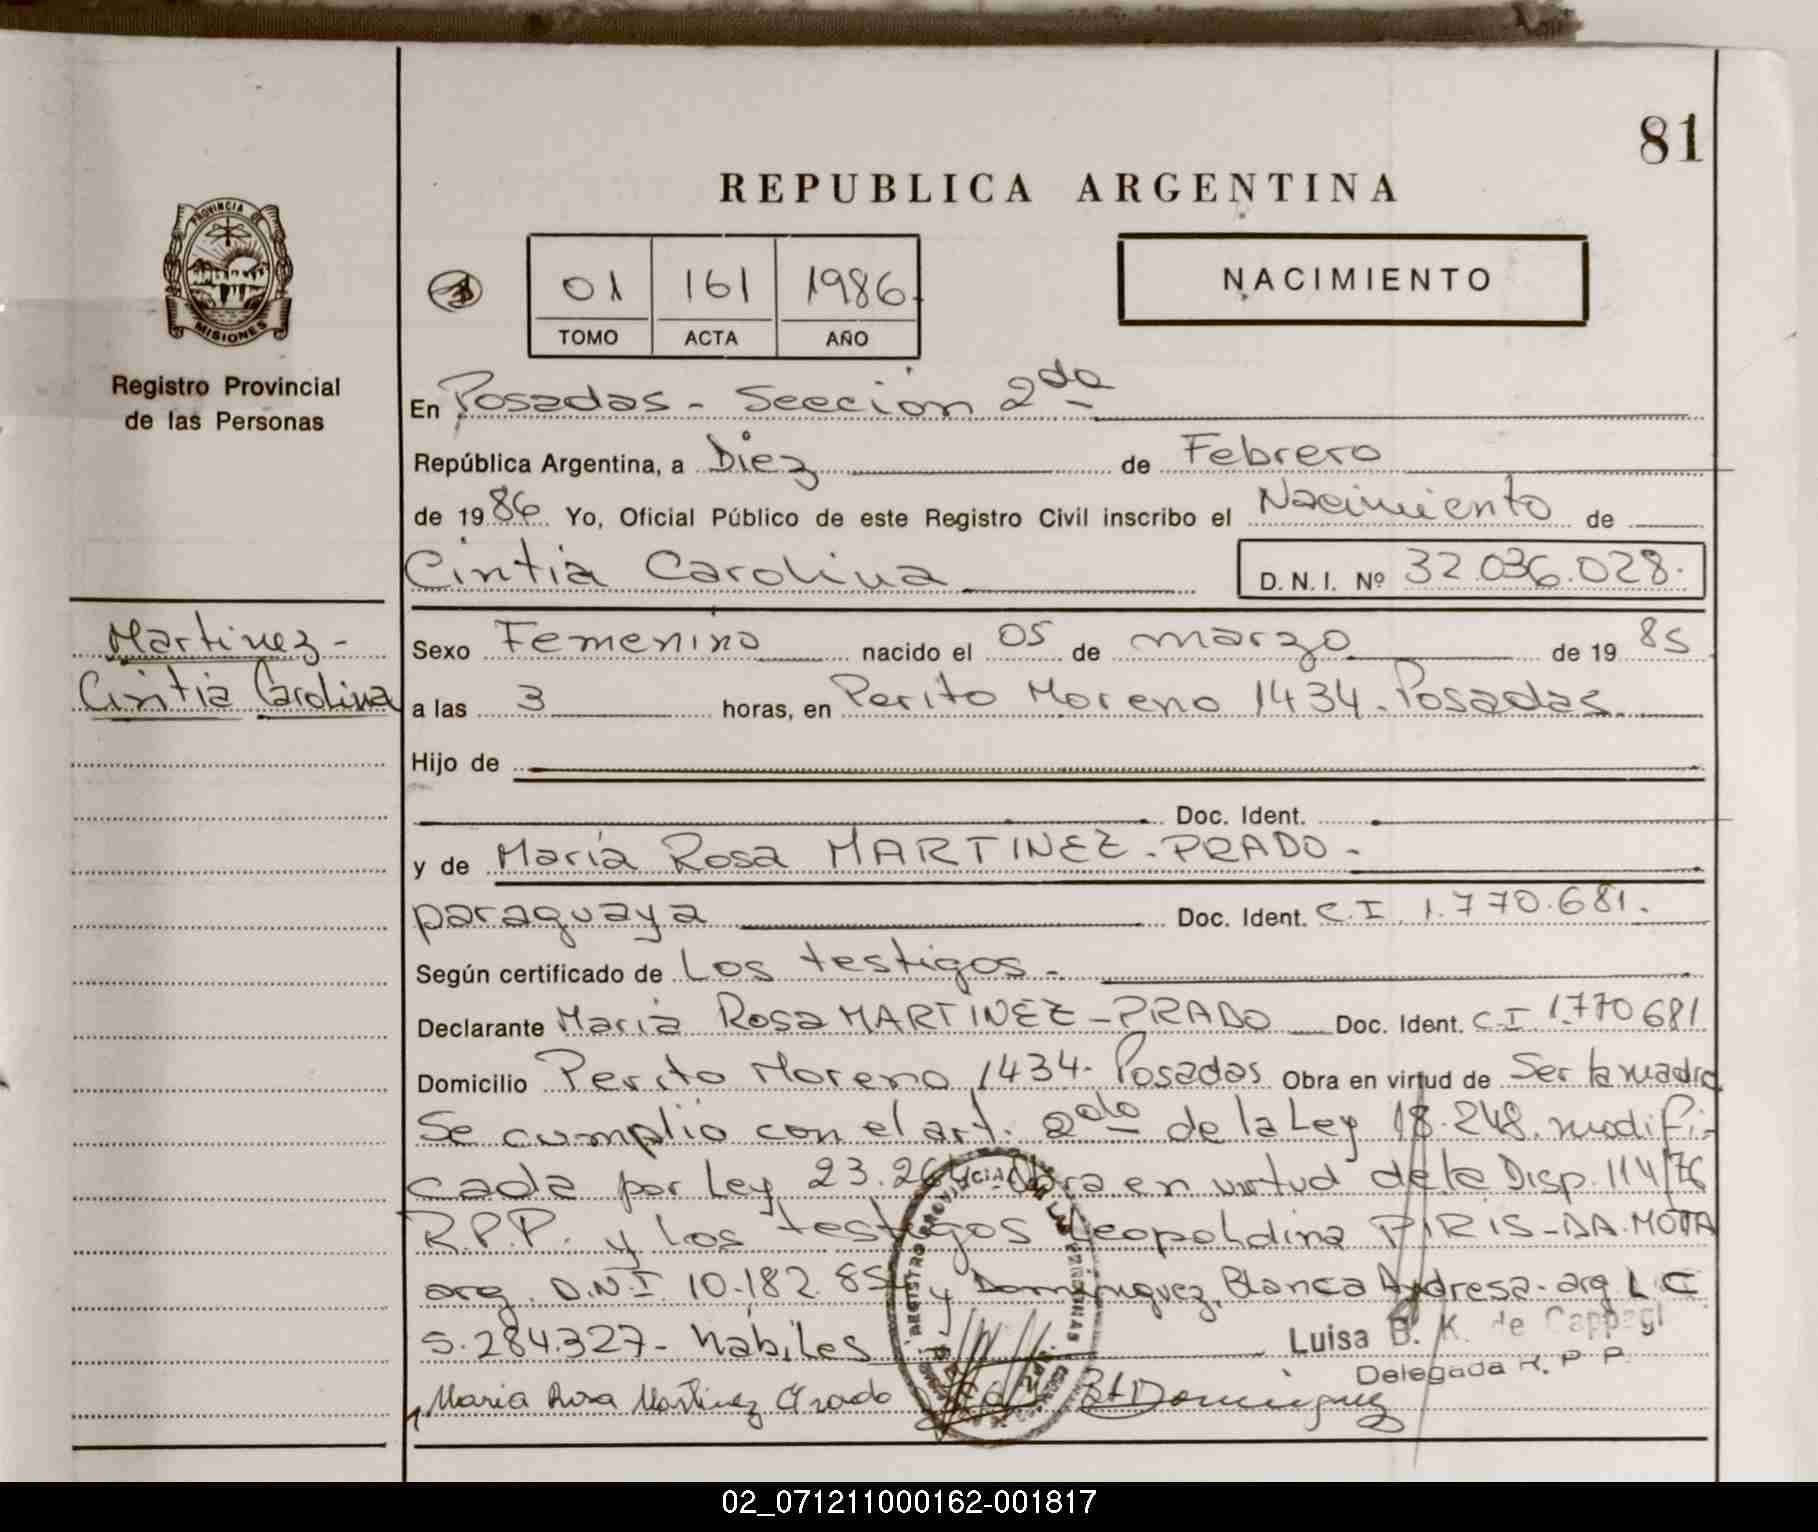 81
REPUBLICA ARGENTINA
PROVINCIA DE
MISIONES
01 161 1986
TOMO ACTA AÑO
NACIMIENTO
Registro Provincial
de las Personas
En Posadas - Sección 2da
República Argentina, a Diez de Febrero
de 1986 Yo, Oficial Público de este Registro Civil inscribo el Nacimiento de
Cintia Carolina D. N. I. Nº 32.036.028.
Martinez -
Cintia Carolina
Sexo Femenino nacido el 05 de marzo de 1985
a las 3 horas, en Perito Moreno 1434. Posadas.
Hijo de
Doc. Ident.
y de María Rosa MARTINEZ - PRADO -
paraguaya Doc. Ident. C.I. 1.770.681.
Según certificado de Los testigos.
Declarante María Rosa MARTINEZ - PRADO Doc. Ident. C.I 1.770681
Domicilio Perito Moreno 1434. Posadas Obra en virtud de Ser la madre
Se cumplió con el art. 2do de la Ley 18.248. modifi-
cada por Ley Obra en virtud de la Disp. 114/76
R.P.P. y los testigos Leopoldina PIRIS - DA - MOTTA
arg. D.N.I. y Dominguez, Blanca Andresa - arg L C
5.284.327 - hábiles
Luisa B. K. de
Delegada R. P. P.
Maria Rosa Martinez Prado Dominguez
REGISTRO PROVINCIAL DE LAS PERSONAS
02_071211000162-001817